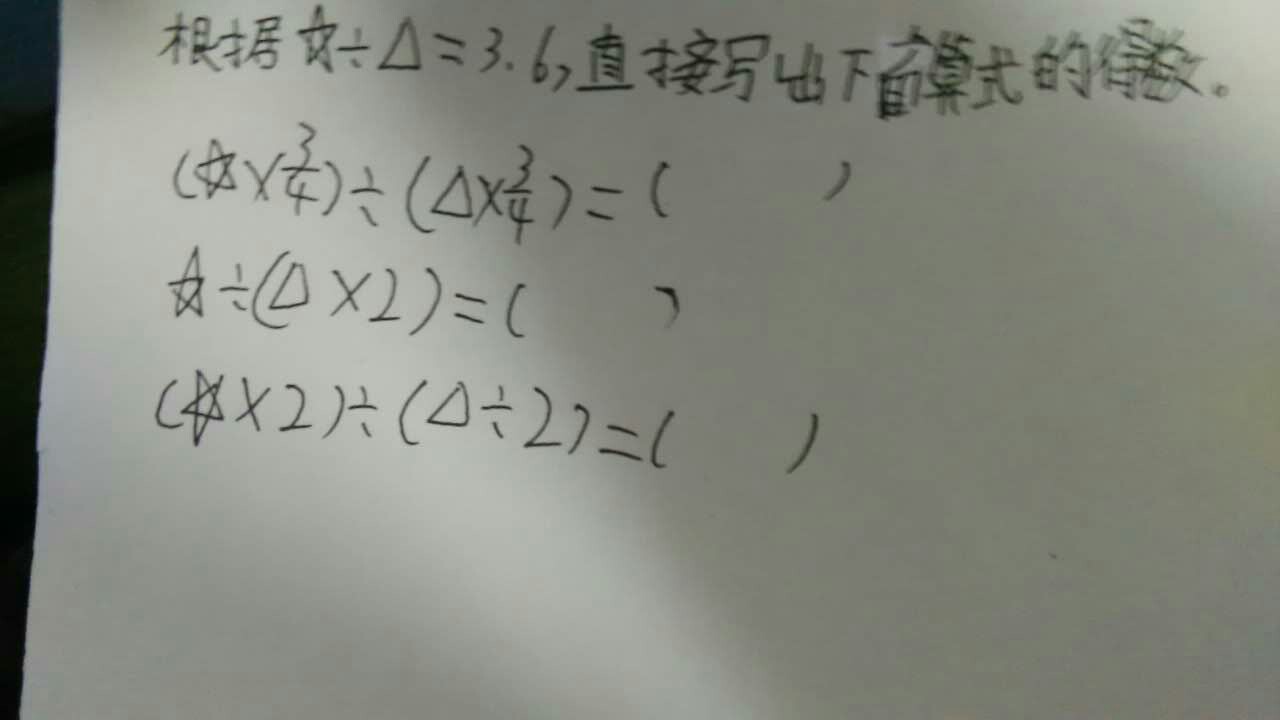 根据☆÷△=3.6,直接写出下面算式的得数。
(☆×3/4)÷(△×3/4)=( )
☆÷(△×2)=( )
(☆×2)÷(△÷2)=( )